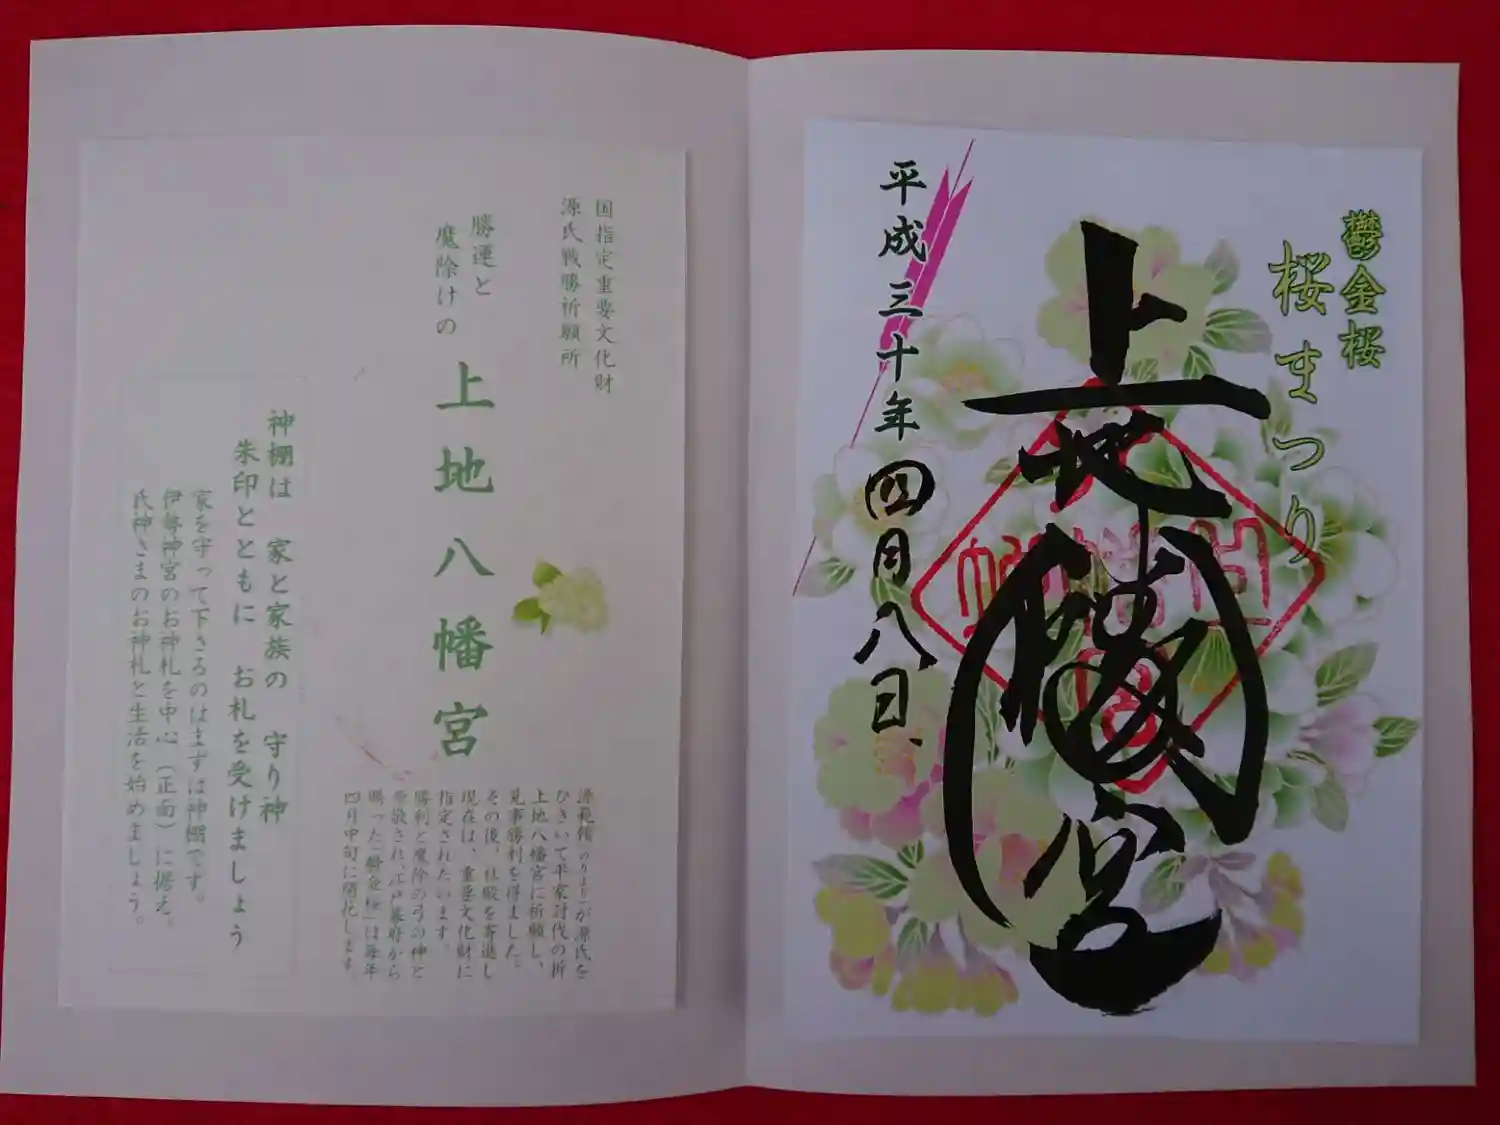 鬱金桜
桜まつり
上地八幡宮
平成三十年四月八日、
国指定重要文化財
源氏戦勝祈願所
勝運と
魔除けの
上地八幡宮
源範頼(のりより)が源氏を
ひきいて平家討伐の折
上地八幡宮に祈願し、
見事勝利を得ました。
その後、社殿を寄進し
現在は、重要文化財に
指定されたいます。
勝利と魔除の弓の神と
崇敬され、江戸幕府から
賜った「鬱金桜」は毎年
四月中旬に開花します
神棚は 家と家族の 守り神
朱印とともに お札を受けましょう
家を守って下さるのはまずは神棚です。
伊勢神宮のお神札を中心(正面)に据え、
氏神さまのお神札と生活を始めましょう。